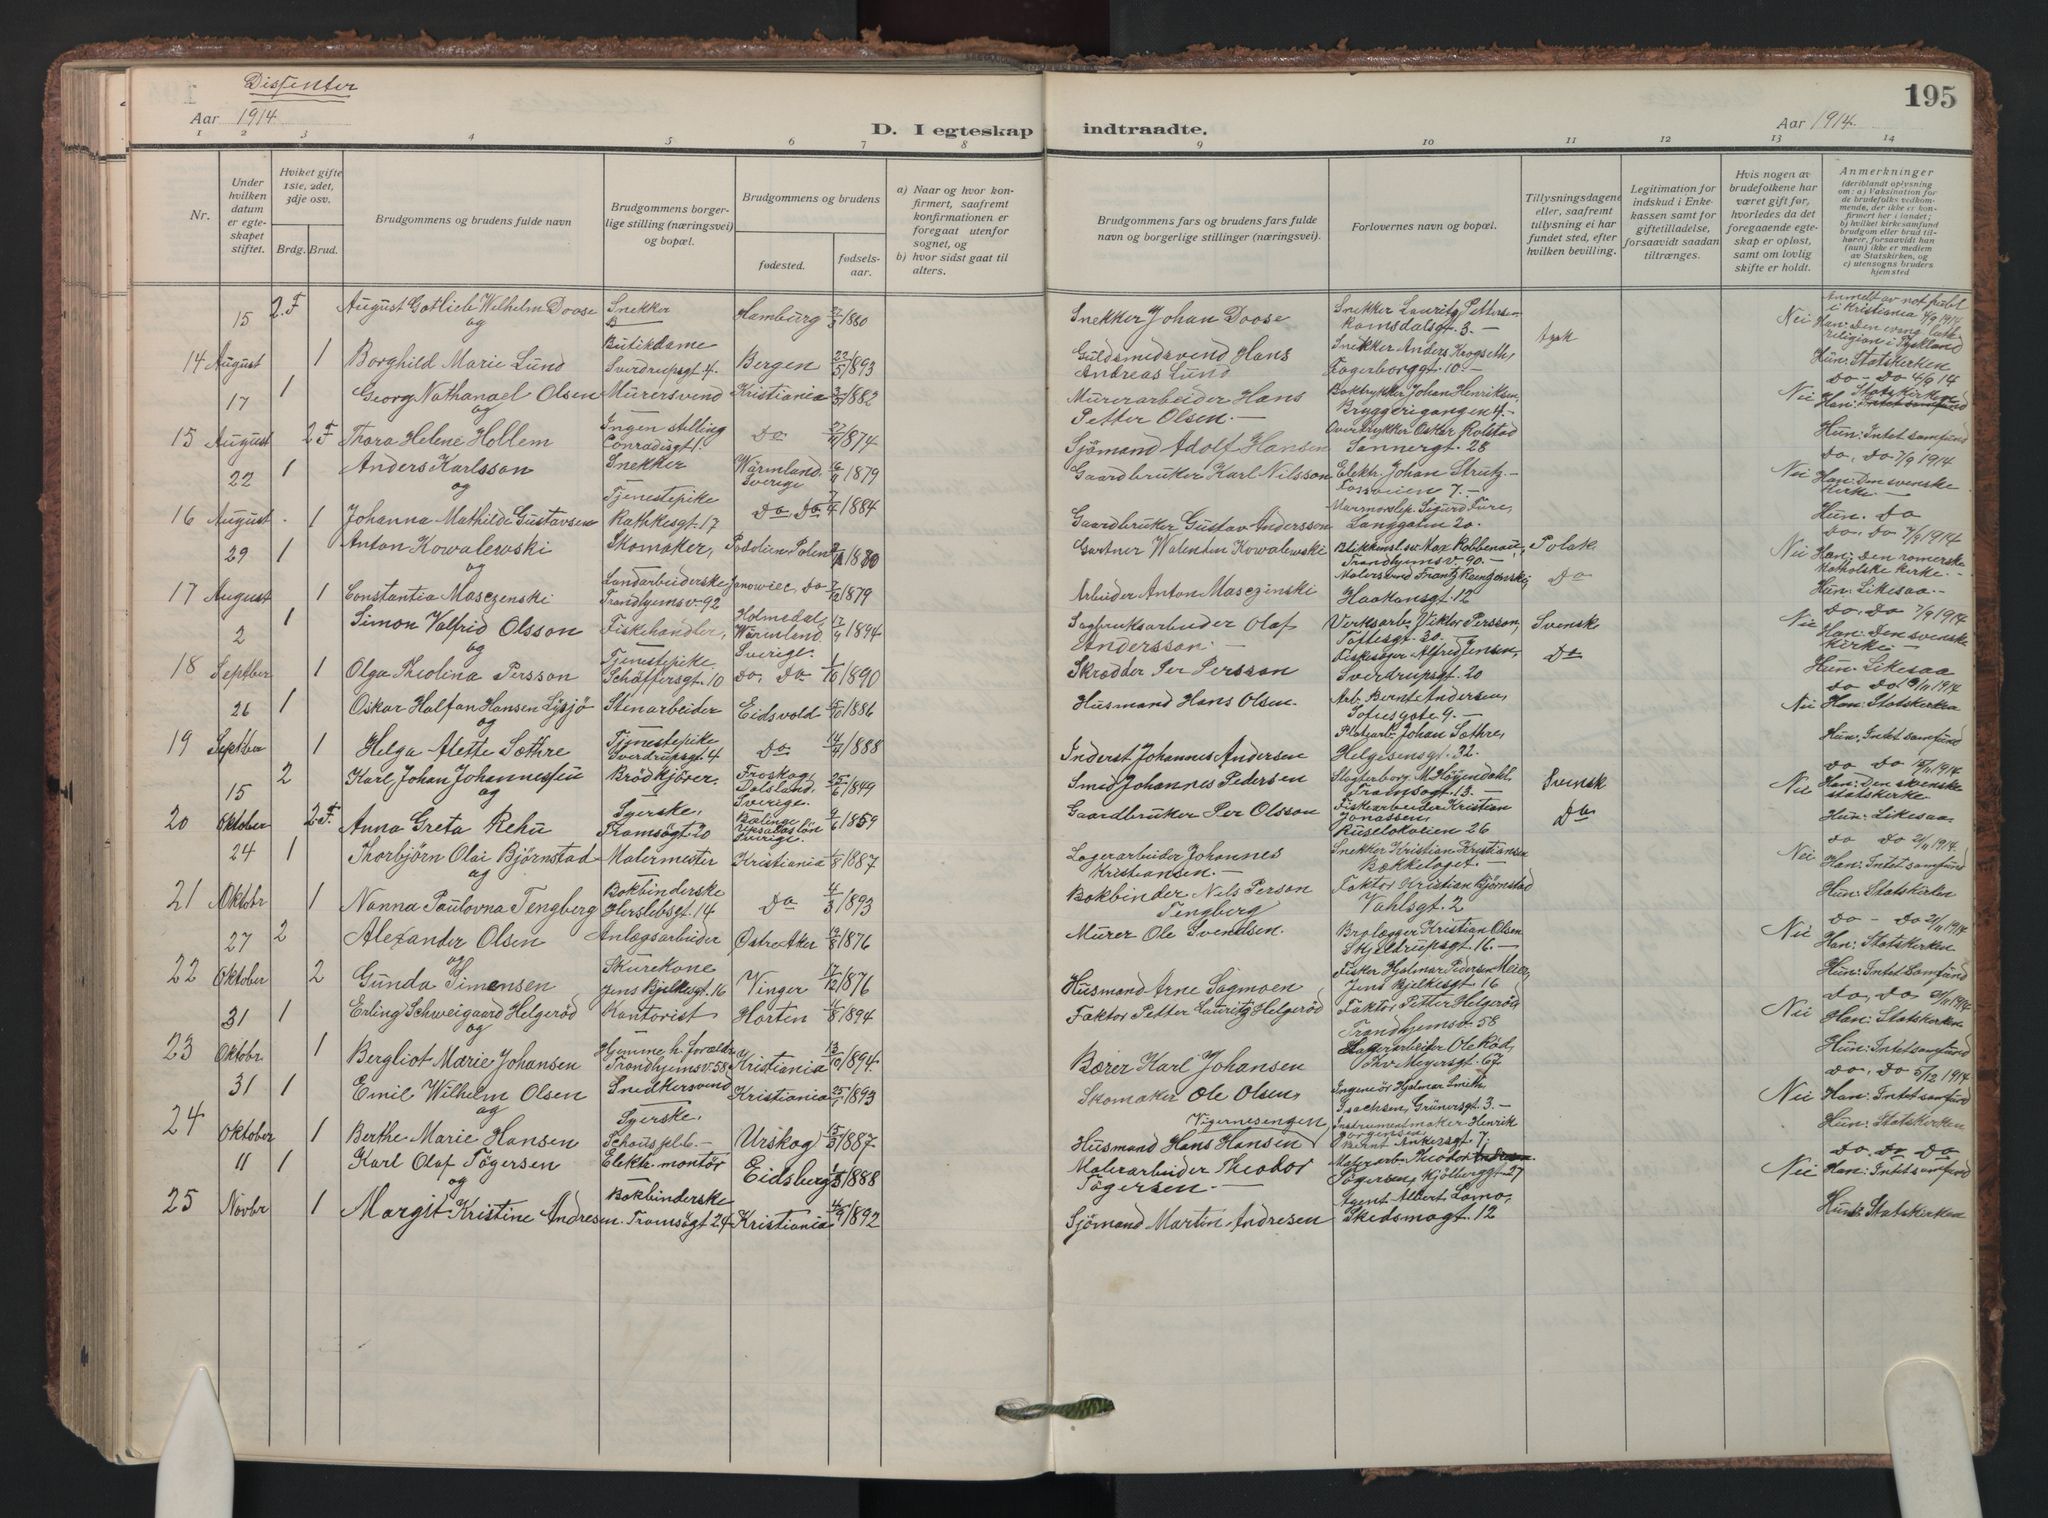 Dissenter
Aar 1914
D. I egteskap indtraadte.
Aar 1914
195
1 2 3 4 5 6 7 8 9 10 11 12 13 14
Nr.
Under hvilken datum er egteskapet stiftet.
Hvilket gifte 1ste, 2det, 3dje osv.
Brdg. Brud.
Brudgommens og brudens fulde navn
Brudgommens borgerlige stilling (næringsvei) og bopæl.
Brudgommens og brudens
fødested.
fødselsaar.
a) Naar og hvor konfirmert, saafremt konfirmationen er foregaat utenfor sognet, og
b) hvor sidst gaat til alters.
Brudgommens fars og brudens fars fulde navn og borgerlige stillinger (næringsvei).
Forlovernes navn og bopæl.
Tillysningsdagene eller, saafremt tillysning ei har fundet sted, efter hvilken bevilling.
Legitimation for indskud i Enkekassen samt for giftetilladelse, forsaavidt saadan tiltrænges.
Hvis nogen av brudefolkene har været gift før, hvorledes da det foregaaende egteskap er opløst, samt om lovlig skifte er holdt.
Anmerkninger
(deriblandt oplysning om: a) Vaksination for de brudefolks vedkommende, der ikke er konfirmert her i landet; b) hvilket kirkesamfund brudgom eller brud tilhører, forsaavidt han (hun) ikke er medlem av Statskirken, og c) utensogns bruders hjemsted
14 15 August 2.F August Gotlieb Wilhelm Doose Snekker Hamburg 1880 Snekker Johan Doose Snekker Lauritz Pettersen Romsdalsgt. 3. Tysk Nei Anmelt av not. publ. i Kristiania 4/9 1914 Han: Den evang. luth. religion i Tyskland
og
1 Borghild Marie Lund Butikdame Sverdrupsgt 4. Bergen 22/5 1893 Guldsmedsvend Hans Andreas Lund Snekker Anders Krogseth, Fagerborggt. 10. Hun: Statskirken
15 17 August 1 Georg Nathanael Olsen Murersvend Kristiania 1882 Murerarbeider Hans Petter Olsen. Boktrykker Johan Henriksen, Bryggerigangen 4. Nei Do - Do 4/9 14 Han: Statskirken
og
2 F Thora Helene Hollem Ingen stilling Conradisgt 1. Do 1874 Sjömand Adolf Hansen Overtrykker Oskar Rolstad Sannergt. 28 Hun: Intet samfund
16 22 August 1 Anders Karlsson Snekker Wärmland, Sverige 1879 Gaardbruker Karl Nilsson Elektr. Johan Strutz. Fossveien 7. Nei Do, Do 7/9 1914 Han: Den svenske kirke
og
1 Johanna Mathilde Gustavsen Tjenestepike Rathkesgt. 17 Do Do 7/4 1884 Gaardbruker Gustav Andersson Marmorslip. Sigurd Fure, Langgaten 20. Hun. Do
17 29 August 1 Anton Kowalewski Skomaker, Podolien, Polen 1880 Gartner Walenten Kowalewski Blikkensl. sv. Max Robbenau, Trondhjemsv. 90. Polak Nei Do. Do 7/9 1914 Han: Den romersk katholske kirke.
og
1 Constantia Masczenski Landarbeiderske Trondhjemsv. 92 Janowiec, Do 7/12 1879 Arbeider Anton Masczenski Malersvend Frantz Haakonsgt. 12 Do Hun: Likesaa.
18 2 Septber 1 Simon Valfrid Olsson Fiskehandler, Holmedal, Wärmland, Sverige. 1894 Sagbruksarbeider Olaf Andersson. Verksarb. Viktor Persson, Toftesgt. 20. Svensk Nei Do. Do 7/9 1914 Han: Den svenske kirke
og
1 Olga Theolina Persson Tjenestepike Schäffersgt. 10 Do, Do 1/10 1890 Skrædder Per Persson Fiskesöger Alfred Jensen, Sverdrupsgt. 20 Do Hun: Likesaa
19 26 Septber 1 Oskar Halfan Hansen Lysjö Stenarbeider Eidsvold 1886 Husmand Hans Olsen. Arb. Bernt Andersen, Sofiesgate 9. Nei Do Do 1914 Han: Statskirken
og
1 Helga Alette Sæthre Tjenestepike Sverdrupsgt. 4 Do 1888 Inderst Johannes Andersen Johan Sæthre, Helgesensgt. 32. Hun: Intet samfund
20 15 Oktober 2 Karl Johan Johannessen Brödkjörer. Froskog, Dalsland, Sverige. 25/6 1849 Smed Johannes Pedersen Slagterborg. M. Höyendahl, Tromsögt. 13. Svensk Nei Do Do 1914 Han: Den svenske statskirke.
og
2 F. Anna Greta Rehn Syerske, Tromsögt 20 Bælinge Upsalaslän Sverige. 9/6 1859 Gaardbruker Per Olsson Fiskearbeider Kristian Jonassen, Ruselökveien 26 Do Hun: Likesaa
21 24 Oktobr 1 Thorbjörn Olai Björnstad Malermester Kristiania 1887 Lagerarbeider Johannes Kristiansen. Snekker Kristian Kristiansen Bækkelaget. Nei Do Do 2/11 1914 Han: Intet samfund
og
1 Nanna Paulovna Tengberg Bokbinderske Herslebsgt. 14 Do 4/3 1893 Bokbinder Nils Person Tengberg Faktor Kristian Björnstad Vahlsgt. 2 Hun: Statskirken
22 27 Oktober 2 Alexander Olsen Anlægsarbeider Östre Aker 1876 Murer Ole Svendsen. Brolægger Kristian Olsen Skjeldrupsgt. 16. Nei Do - Do 2/11 1914 Han: Statskirken
og
2 Gunda Simensen Skurekone Jens Bjelkesgt. 16 Vinger 17/12 1876 Husmand Arne Sagmoen Fisker Hjalmar Pedersen Meier, Jens Bjelkesgt 16 Hun: Intet samfund
23 31 Oktobr. 1 Erling Schweigaard Helgeröd Kontorist Horten 1894 Faktor Petter Lauritz Helgeröd Faktor Petter Helgeröd, Trondhjemsv. 58 Nei Do, Do 1914 Han: Statskirken
og
1 Bergliot Marie Johansen Hjemme h. forældre Trondhjemsv. 58 Kristiania 13/10 1894. Bærer Karl Johansen Lagerarbeider Ole Röd, Thv. Meyersgt. 67. Hun: Intet samfund
24 31 Oktober 1 Emil Wilhelm Olsen Snedkersvend Kristiania 1893 Skomaker Ole Olsen, Ingeniör Hjalmar Smith Isachsen, Grünersgt. 3. Nei Do. Do 5/12 1914 Han: Intet samfund
og
1 Berthe Marie Hansen Syerske, Schouspl. 6. Urskog 15/3 1887. Husmand Hans Hansen Vigernesengen Instrumentmaker Henrik Jörgensen, Bernt Ankersgt 7. Hun: Statskirken
25 11 Novbr 1 Karl Olaf Tögersen Elektr. montör Eidsberg 1888 Malerarbeider Theodor Tögersen. Malerarb. Theodor Tögersen, Kjölberggt. 27 Nei Do. Do Do Han: Intet samfund
og
1 Margit Kristine Andresen. Bokbinderske Tromsögt 24 Kristiania 1892 Sjömand Martin Andresen Agent Albert Lomo, Skedsmogt. 12 Hun: Statskirken